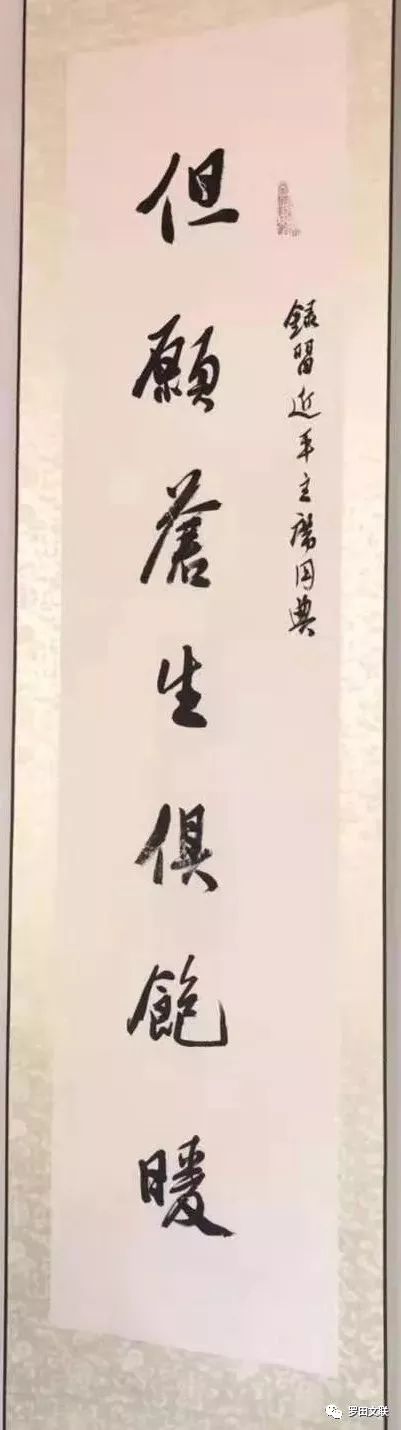 錄習近平主席用典
但願蒼生俱飽暖
罗田文联